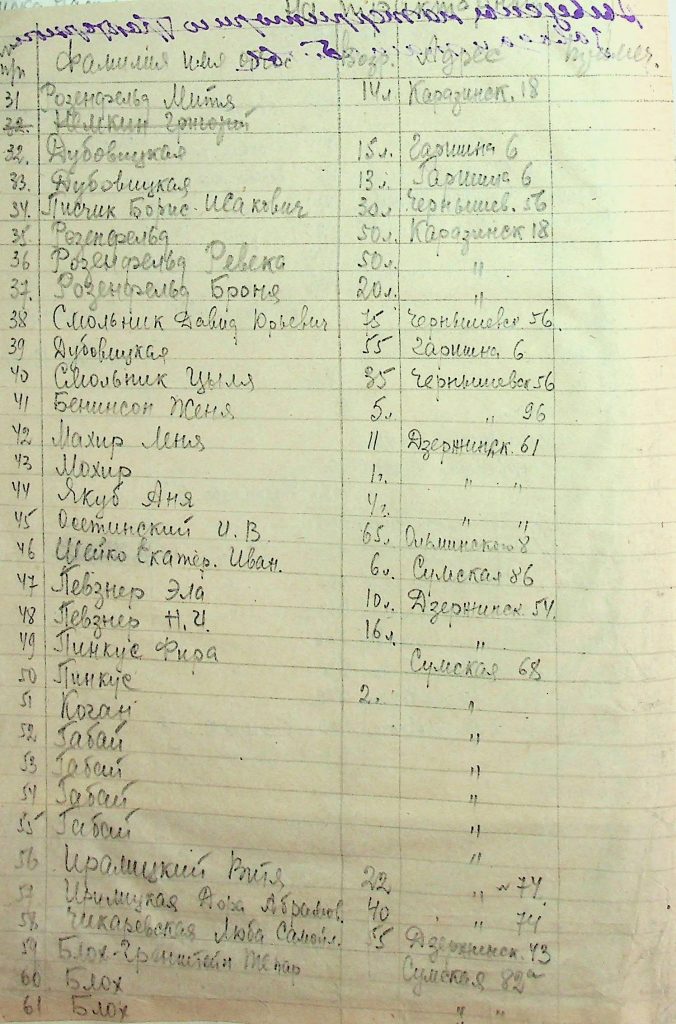 Фамилия имя отч. Возр. Адрес Примеч.
31 Розенфельд Митя 14л Каразинск. 18
32. Немкин Григорий
32. Дубовицкая 15л. Гаршина 6
33. Дубовицкая 13л. Гаршина 6
34. Писчик Борис Исакович 30л Чернышев. 56
35. Розенфельд 50л. Каразинск 18
36 Розенфельд Ревека 50л. "
37. Розенфельд Броня 20л. "
38 Смольник Давид Юрьевич 75 Чернышевск 56.
39 Дубовицкая 55 Гаршина 6
40 Смольник Цыля 35 Чернышевск 56
41 Бенинсон Женя 5л. " 96
42 Махир Леня 11 Дзержинск. 61
43 Мохир 1г. " "
44 Якуб Аня 4г. " "
45 Осетинский И. В. 65л. Ольминского 8
46 Шейко Екатер. Иван. 6л. Сумская 86
47 Певзнер Эла 10л. Дзержинск. 54.
48 Певзнер Н.И. 16л. "
49 Пинкус Фира Сумская 68
50 Пинкус 2г. "
51 Коган "
52 Габай "
53 Габай "
54 Габай "
55 Габай "
56 Витя 22 " 74
57 Дора Абрамов. 40 " 74
58. Чикаревская Люба Самойл. 55 Дзержинск. 43
59 Блох- Сумская 82а
60 Блох
61 Блох " "